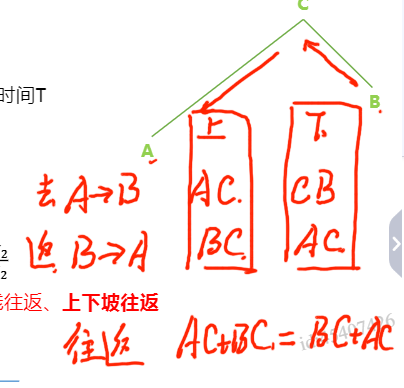 C
时间T
B
A
上 下
去 A→B AC CB
2
返 B→A BC AC
2
往返、上下坡往返
往返 AC+BC = BC+AC